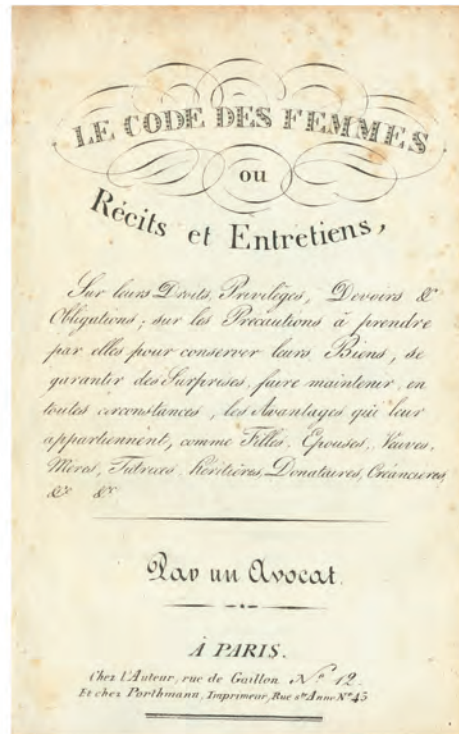 LE CODE DES FEMMES
ou
Récits et Entretiens,
Sur leurs Droits, Privilèges, Devoirs &
Obligations; sur les Précautions à prendre
par elles pour conserver leurs Biens, se
garantir des Surprises, faire maintenir, en
toutes circonstances, les Avantages qui leur
appartiennent, comme Filles, Epouses, Veuves,
Mères, Tutrices, héritières, Donataires, Créancieres,
&c &c
Par un Avocat.
À PARIS.
Chez l'Auteur, rue de Gaillon Nº 12.
Et chez Porthmann, Imprimeur, Rue Ste Anne Nº 43